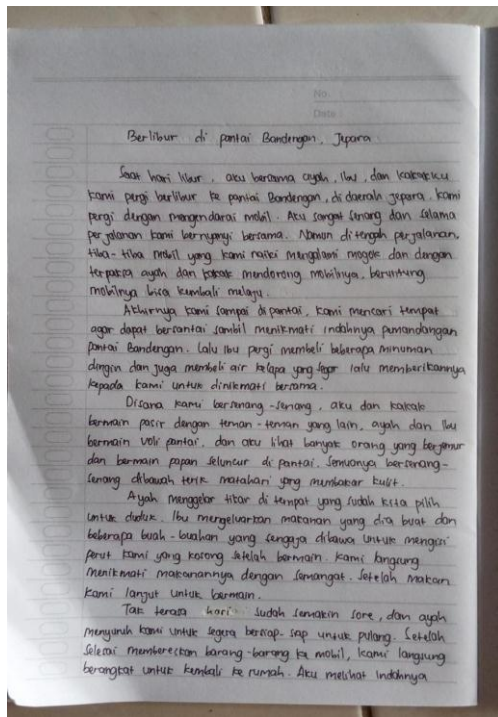 No.
Date
Berlibur di pantai Bandengan, Jepara
Saat hari libur, aku bersama ayah, Ibu, dan kakakku
kami pergi berlibur ke pantai Bandengan, di daerah Jepara. Kami
pergi dengan mengendarai mobil. Aku sangat senang dan selama
perjalanan kami bernyanyi bersama. Namun ditengah perjalanan,
tiba-tiba mobil yang kami naiki mengalami mogok dan dengan
terpaksa ayah dan kakak mendorong mobilnya, beruntung
mobilnya bisa kembali melaju.
Akhirnya kami sampai dipantai, kami mencari tempat
agar dapat bersantai sambil menikmati indahnya pemandangan
pantai Bandengan. Lalu Ibu pergi membeli beberapa minuman
dingin dan juga membeli air kelapa yang segar lalu memberikannya
kepada kami untuk dinikmati bersama.
Disana kami bersenang-senang, aku dan kakak
bermain pasir dengan teman-teman yang lain, ayah dan Ibu
bermain voli pantai, dan aku lihat banyak orang yang berjemur
dan bermain papan seluncur di pantai. Semuanya bersenang-
senang dibawah terik matahari yang membakar kulit.
Ayah menggelar tikar di tempat yang sudah kita pilih
untuk duduk. Ibu mengeluarkan makanan yang dia buat dan
beberapa buah-buahan yang sengaja dibawa untuk mengisi
perut kami yang kosong setelah bermain. Kami langsung
menikmati makanannya dengan semangat. Setelah makan
kami lanjut untuk bermain.
Tak terasa hari sudah semakin sore, dan ayah
menyuruh kami untuk segera bersiap-siap untuk pulang. Setelah
selesai membereskan barang-barang ke mobil, kami langsung
berangkat untuk kembali ke rumah. Aku melihat indahnya